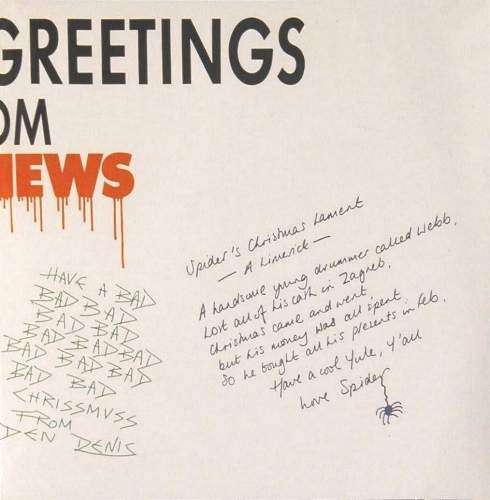 GREETINGS
OM
NEWS
HAVE A BAD
BAD BAD
BAD BAD
BAD BAD BAD
BAD BAD BAD
BAD BAD
CHRISSMVSS
FROM
DEN DENIS
Spider's Christmas Lament
— A Limerick —
A handsome young drummer called Webb,
Lost all of his cash in Zagreb,
Christmas came and went,
but his money was all spent
So he bought all his presents in feb.
Have a cool Yule, Y'all
Love Spider